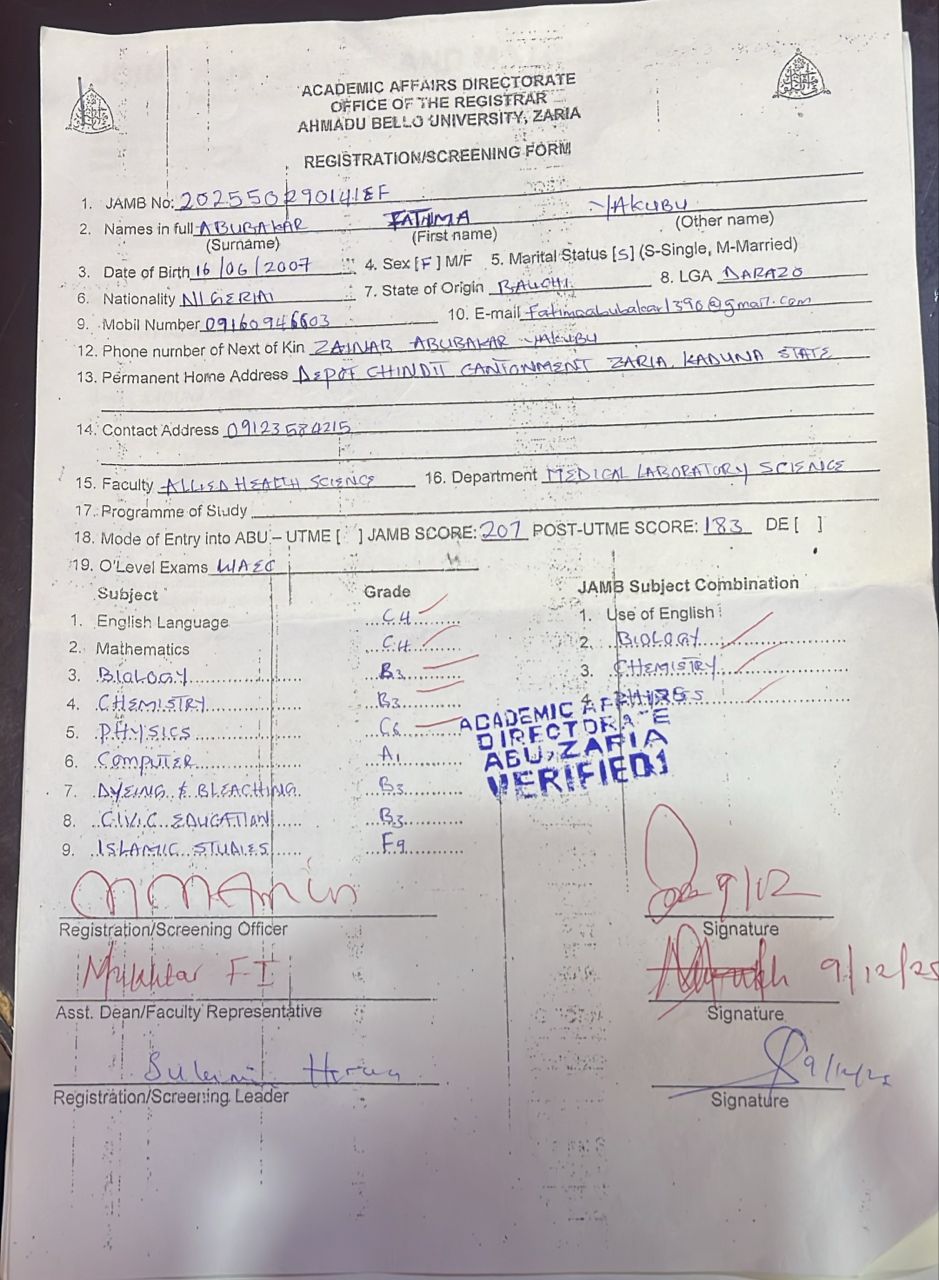 ACADEMIC AFFAIRS DIRECTORATE
OFFICE OF THE REGISTRAR
AHMADU BELLO UNIVERSITY, ZARIA
REGISTRATION/SCREENING FORM
1. JAMB No: 202550290141EF
2. Names in full ABUBAKAR FATIMA YAKUBU
(Surname) (First name) (Other name)
3. Date of Birth 16/06/2007 4. Sex [F] M/F 5. Marital Status [S] (S-Single, M-Married)
6. Nationality NIGERIA 7. State of Origin BAUCHI 8. LGA DARAZO
9. Mobil Number 09160946603 10. E-mail Fatimaabubakar1396@gmail.com
12. Phone number of Next of Kin ZAINAB ABUBAKAR YAKUBU
13. Permanent Home Address DEPOT CHINDIT CANTONMENT ZARIA, KADUNA STATE
14. Contact Address 09123584215
15. Faculty ALLIED HEALTH SCIENCE 16. Department MEDICAL LABORATORY SCIENCE
17. Programme of Study
18. Mode of Entry into ABU – UTME [ ] JAMB SCORE: 207 POST-UTME SCORE: 183 DE [ ]
19. O'Level Exams WAEC
Subject Grade JAMB Subject Combination
1. English Language C4 1. Use of English
2. Mathematics C4 2. BIOLOGY
3. BIOLOGY B3 3. CHEMISTRY
4. CHEMISTRY B3 4.
5. PHYSICS C6
6. COMPUTER A1
7. DYEING & BLEACHING B3
8. CIVIC EDUCATION B3
9. ISLAMIC STUDIES F9
ACADEMIC AFFAIRS
DIRECTORATE
ABU, ZARIA
VERIFIED1
9/12
Registration/Screening Officer Signature
Mukhtar F I 9/12/25
Asst. Dean/Faculty Representative Signature
9/12/25
Registration/Screening Leader Signature